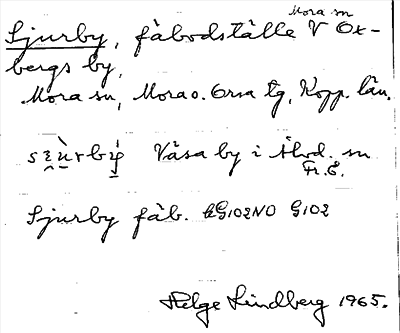 Mora sn
Sjurby, fäbodställe V Ox-
bergs by,
Mora sn, Mora o. Orsa tg, Kopp. län.
Våsa by i Älvd. sn
Fr. E.
Sjurby fäb. G102NO G102
Helge Lindberg 1965.